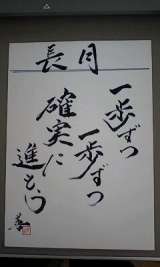 長月
一歩ずつ
一歩ずつ
確実に
進もう